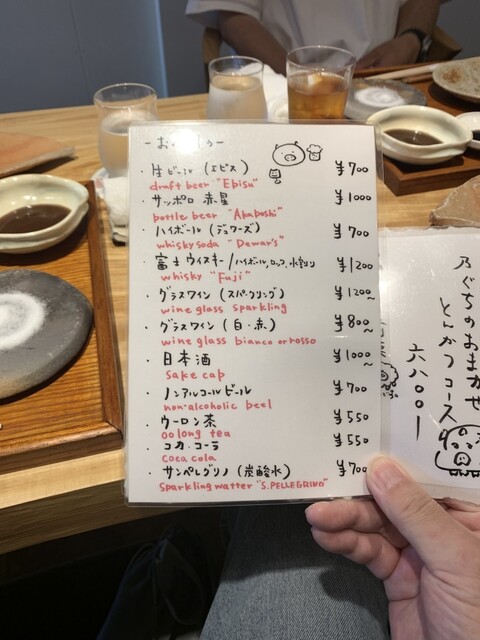 生ビール (エビス) ¥700
draft beer "Ebisu"
・サッポロ 赤星 ¥1000
bottle beer "Akaboshi"
・ハイボール (デュワーズ) ¥700
whisky soda "Dewar's"
・富士ウイスキー/ハイボール,ロック,水割り ¥1200
whisky "Fuji"
・グラスワイン (スパークリング) ¥1200~
wine glass sparkling
・グラスワイン (白・赤) ¥800~
wine glass bianco or rosso
・日本酒 ¥1000~
sake cap
・ノンアルコールビール ¥700
non-alcoholic beel
・ウーロン茶 ¥550
oolong tea
・コカ・コーラ ¥550
coca cola
・サンペレグリノ (炭酸水) ¥700
sparkling watter "S.PELLEGRINO"
乃ぐちのおまかせ
とんかつコース
六八〇〇ー